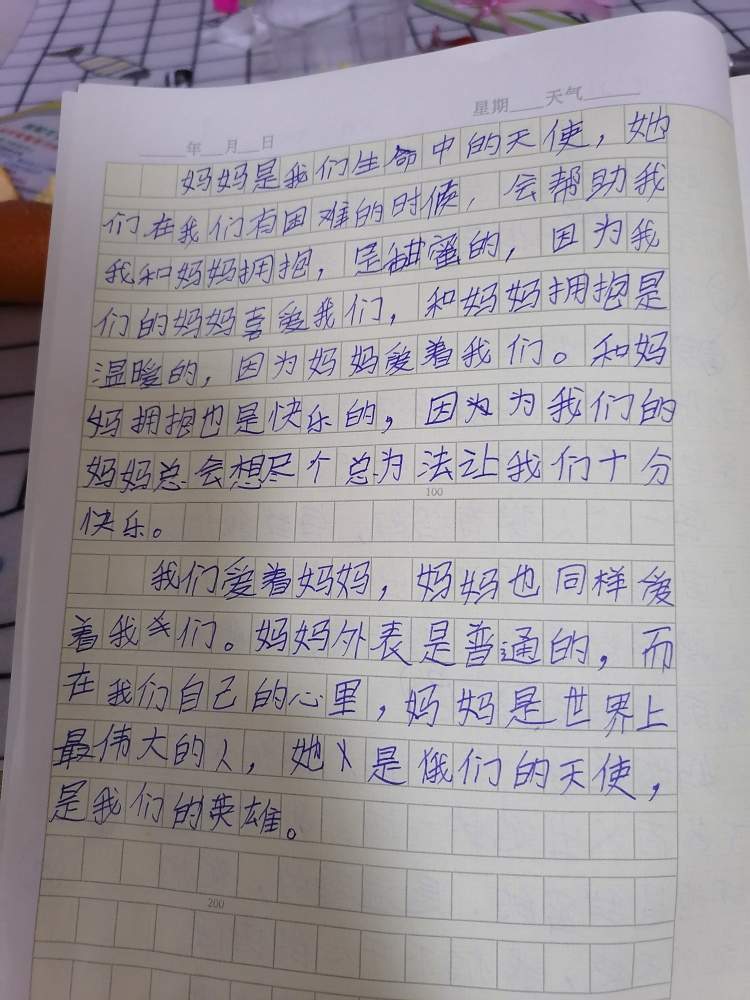 星期____天气______
_____年__月__日
妈妈是我们生命中的天使，她
们在我们有困难的时候，会帮助我
我和妈妈拥抱，是甜蜜的，因为我
们的妈妈喜爱我们，和妈妈拥抱是
温暖的，因为妈妈爱着我们。和妈
妈拥抱也是快乐的，因为为我们的
妈妈总会想尽个总为法让我们十分
100
快乐。
我们爱着妈妈，妈妈也同样爱
着我们。妈妈外表是普通的，而
在我们自己的心里，妈妈是世界上
最伟大的人，她是我们的天使，
是我们的英雄。
200